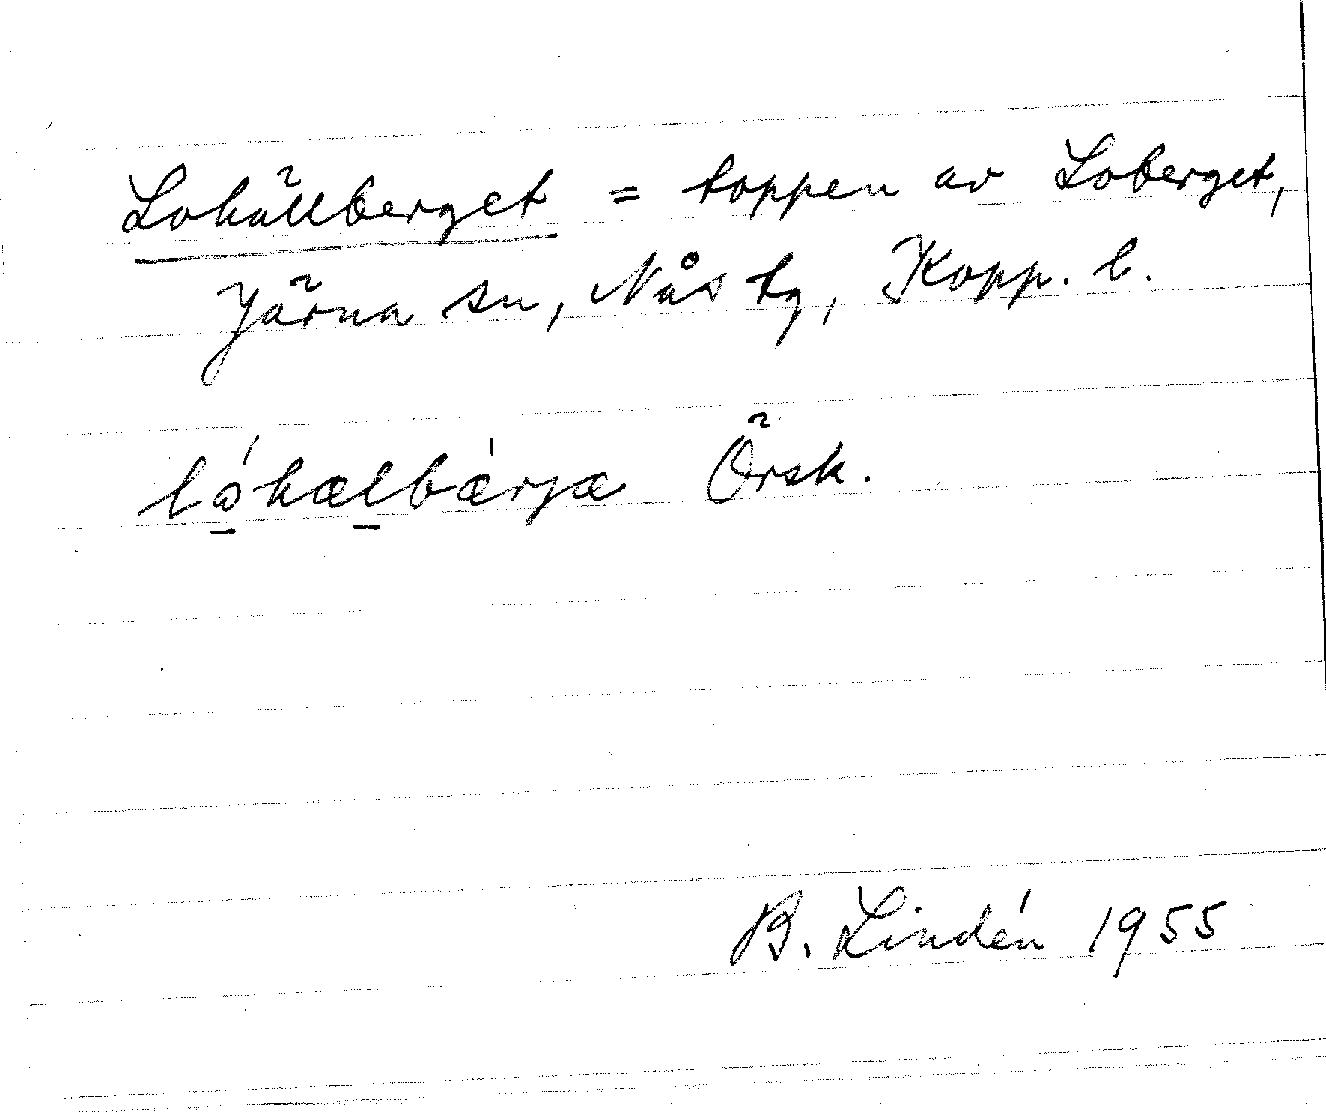 Lohällberget = toppen av Loberget,
Järna sn, Nås tg, Kopp. l.
ló̱hæḻbàrjæ Örsk.
B. Lindén 1955